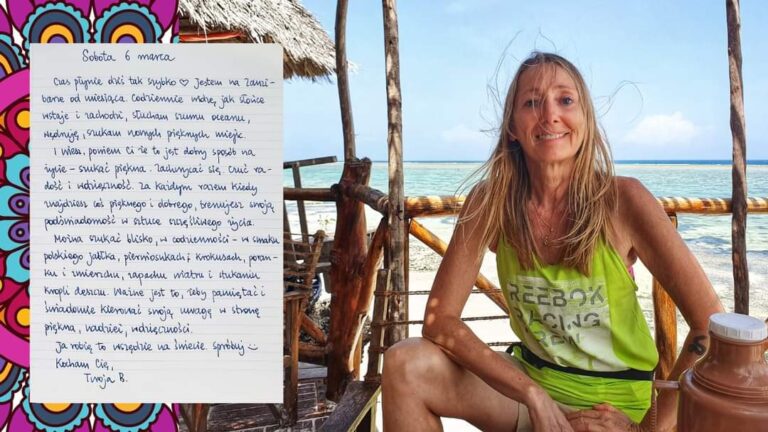 Sobota 6 marca
Czas płynie dziś tak szybko ♡ Jestem na Zanzi-
barze od miesiąca. Codziennie widzę, jak słońce
wstaje i zachodzi, słucham szumu oceanu,
wędruję, szukam nowych pięknych miejsc.
I wiesz, powiem Ci że to jest dobry sposób na
życie - szukać piękna. Zachwycać się, czuć ra-
dość i wdzięczność. Za każdym razem kiedy
znajdziesz coś pięknego i dobrego, trenujesz swoją
podświadomość w sztuce szczęśliwego życia.
Można szukać blisko, w codzienności - w smaku
polskiego jabłka, pierwiosnkach i krokusach, poran-
ku i zmierzchu, zapachu wiatru i stukaniu
kropli deszczu. Ważne jest to, żeby pamiętać i
świadomie kierować swoją uwagę w stronę
piękna, nadziei, wdzięczności.
Ja robię to wszędzie na świecie. Spróbuj
Kocham Cię,
Twoja B.
REEBOK
RACING
CREW